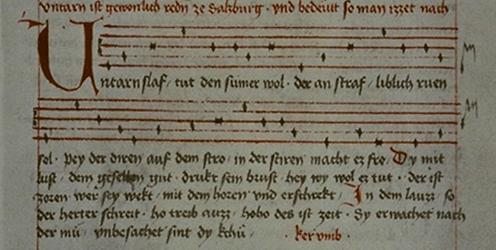 Untarn ist gewonlich redn ze Salzburg · vnd bedeüt so man izzet nach
Untarnslaf · tut den sumer wol · der an straf · liblich ruen
sol · pey der diren auf dem stro · in der stiren macht ez fro · Dy mit
lust · dem geselhen gut · drukt sein brust · hey wy wol ez tut · der ist
zoren wer sey wekt · mit dem horen vnd erschrekt · In dem lauzz · so
der herter schreit · ho treib auzz · hoho des ist zeit · Sy erwachet nach
der mü · vnbesachet sint dy kchü · Ker vmb ·